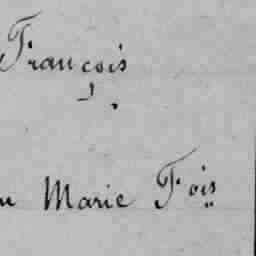 François
u Marie Fois